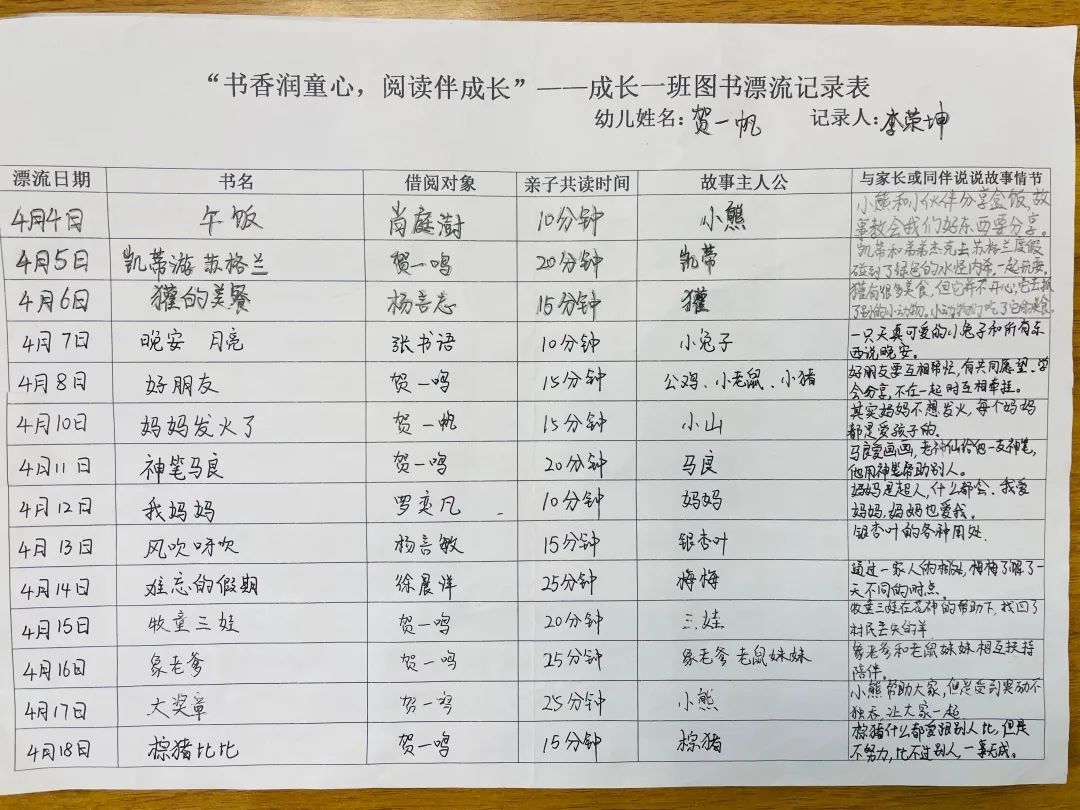 “书香润童心，阅读伴成长”——成长一班图书漂流记录表
幼儿姓名：贺一帆 记录人：李荣坤
漂流日期 书名 借阅对象 亲子共读时间 故事主人公 与家长或同伴说说故事情节
4月4日 午饭 尚庭澍 10分钟 小熊 小熊和小伙伴分享盒饭，故
事教会我们好东西要分享。
4月5日 凯蒂游苏格兰 贺一鸣 20分钟 凯蒂 凯蒂和弟弟杰克去苏格兰度假
碰到了绿色的水怪内希，一起玩耍，
4月6日 獾的美餐 杨喜志 15分钟 獾 獾有很多美食，但它并不开心，它去抓
了别的小动物。小动物们吃了它的美食。
4月7日 晚安 月亮 张书语 10分钟 小兔子 一只天真可爱的小兔子和所有东
西说晚安。
4月8日 好朋友 贺一鸣 15分钟 公鸡、小老鼠、小猪 好朋友要互相帮忙，有共同愿望、学
会分享，不在一起时互相牵挂。
4月10日 妈妈发火了 贺一帆 15分钟 小山 其实妈妈不想发火，每个妈妈
都是爱孩子的.
4月11日 神笔马良 贺一鸣 20分钟 马良 马良爱画画，老神仙给他一支神笔，
他用神笔帮助别人。
4月12日 我妈妈 罗奕凡 10分钟 妈妈 妈妈是超人，什么都会．我爱
妈妈，妈妈也爱我。
4月13日 风吹呀吹 杨喜敏 15分钟 银杏叶 银杏叶的各种用处．
4月14日 难忘的假期 徐晨洋 25分钟 梅梅 通过一家人的相处，梅梅了解了一
天不同的时点。
4月15日 牧童三娃 贺一鸣 20分钟 三娃 牧童三娃在花神的帮助下，找回了
村民丢失的羊.
4月16日 象老爹 贺一鸣 25分钟 象老爹 老鼠妹妹 象老爹和老鼠妹妹相互扶持
陪伴。
4月17日 大奖章 贺一鸣 25分钟 小熊 小熊帮助大家，但是受到奖励不
独吞，让大家一起.
4月18日 棕猪比比 贺一鸣 15分钟 棕猪 棕猪什么都要跟别人比，但是
不努力，比不过别人，一事无成。